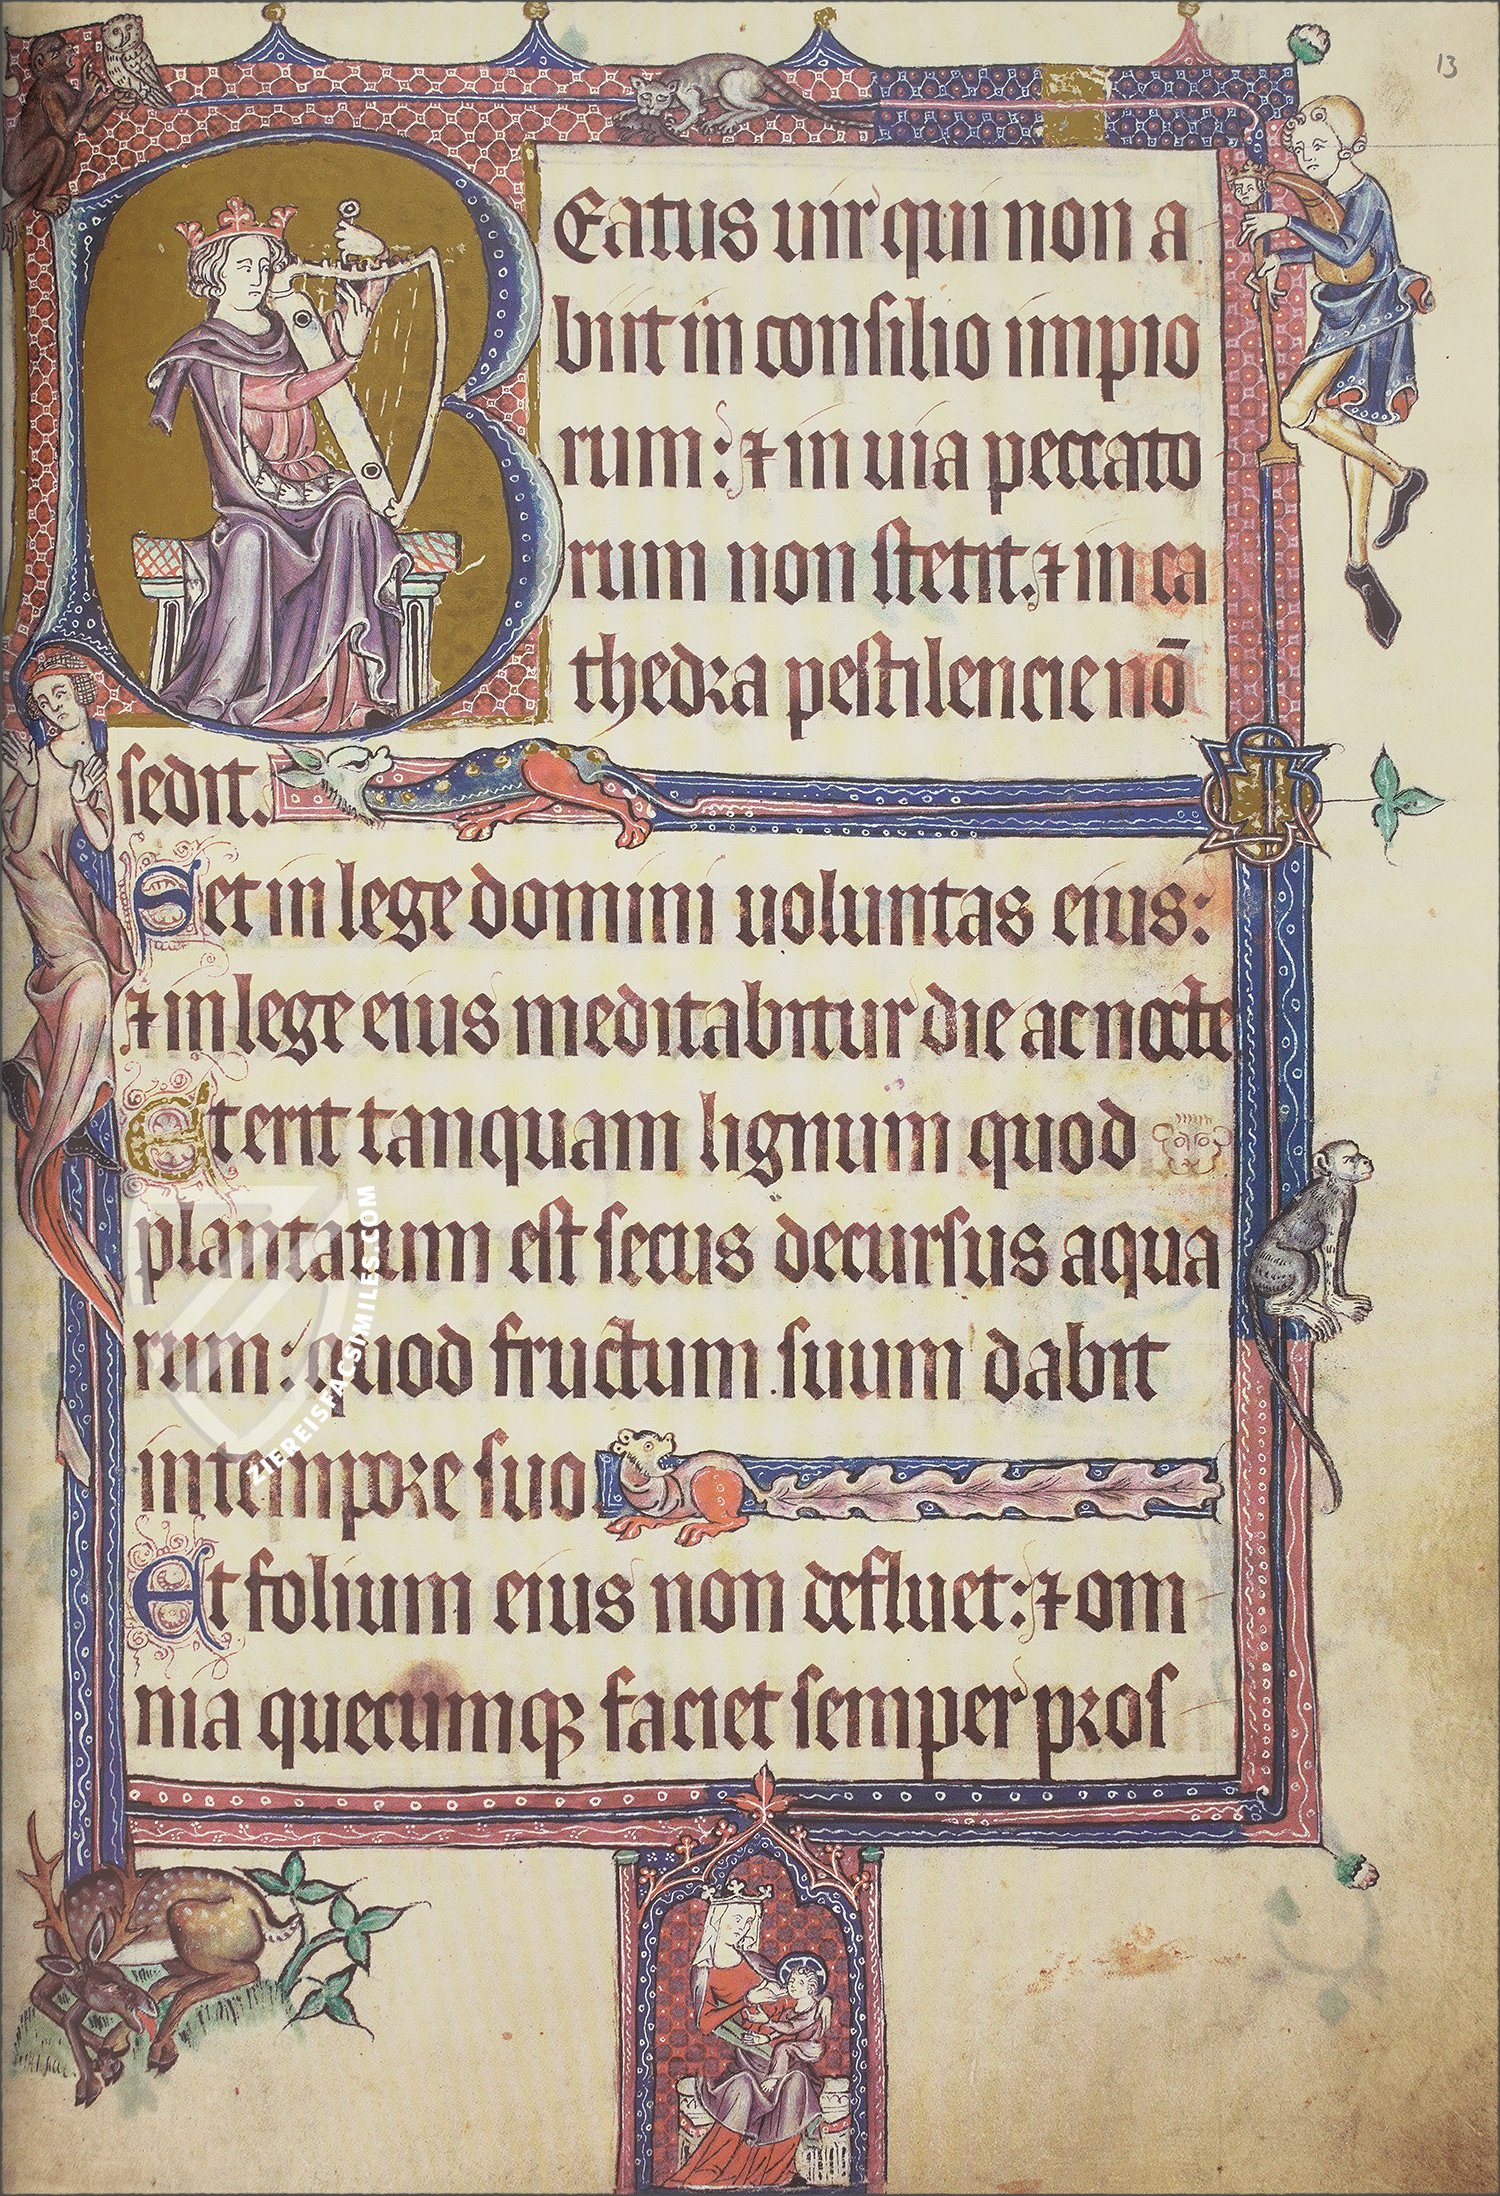 13
BEatus uir qui non a
biit in consilio impio
rum: ⁊ in uia peccato
rum non stetit. ⁊ in ca
thedra pestilencie nō
sedit.
Set in lege domini uoluntas eius:
⁊ in lege eius meditabitur die ac nocte
Et erit tanquam lignum quod
plantatum est secus decursus aqua
rum: quod fructum suum dabit
in tempore suo.
Et folium eius non defluet: ⁊ om
nia quecumqꝫ faciet semper pros
ZIEREISFACSIMILES.COM